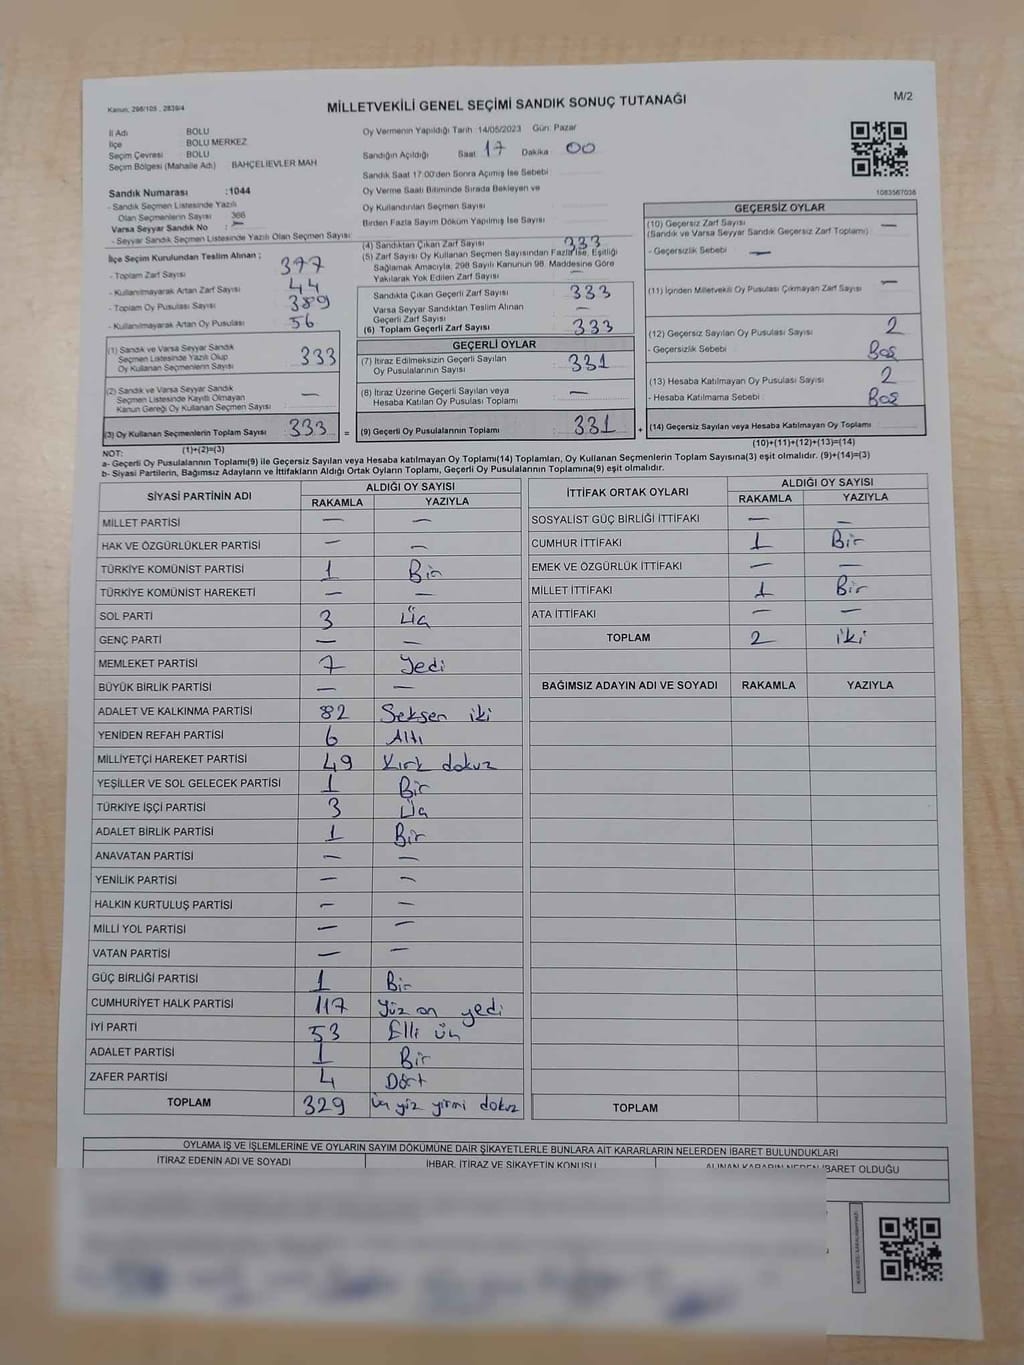 Kanun, 298/105 , 2839/4
MİLLETVEKİLİ GENEL SEÇİMİ SANDIK SONUÇ TUTANAĞI
M/2
İl Adı BOLU
İlçe BOLU MERKEZ
Seçim Çevresi BOLU
Seçim Bölgesi (Mahalle Adı) BAHÇELİEVLER MAH
Oy Vermenin Yapıldığı Tarih :14/05/2023 Gün: Pazar
Sandığın Açıldığı Saat 17 Dakika 00
Sandık Saat 17:00'den Sonra Açımış İse Sebebi
Oy Verme Saati Bitiminde Sırada Bekleyen ve
Oy Kullandırılan Seçmen Sayısı
Birden Fazla Sayım Döküm Yapılmış İse Sayısı
1083567036
Sandık Numarası :1044
- Sandık Seçmen Listesinde Yazılı
Olan Seçmenlerin Sayısı : 366
Varsa Seyyar Sandık No : —
- Seyyar Sandık Seçmen Listesinde Yazılı Olan Seçmen Sayısı:
İlçe Seçim Kurulundan Teslim Alınan ;
- Toplam Zarf Sayısı 377
- Kullanılmayarak Artan Zarf Sayısı 44
- Toplam Oy Pusulası Sayısı 389
- Kullanılmayarak Artan Oy Pusulası 56
(1) Sandık ve Varsa Seyyar Sandık
Seçmen Listesinde Yazılı Olup
Oy Kullanan Seçmenlerin Sayısı 333
(2) Sandık ve Varsa Seyyar Sandık
Seçmen Listesinde Kayıtlı Olmayan
Kanun Gereği Oy Kullanan Seçmen Sayısı —
(3) Oy Kullanan Seçmenlerin Toplam Sayısı 333 =
(4) Sandıktan Çıkan Zarf Sayısı 333
(5) Zarf Sayısı Oy Kullanan Seçmen Sayısından Fazla İse, Eşitliği
Sağlamak Amacıyla, 298 Sayılı Kanunun 98. Maddesine Göre
Yakılarak Yok Edilen Zarf Sayısı —
Sandıkta Çıkan Geçerli Zarf Sayısı 333
Varsa Seyyar Sandıktan Teslim Alınan
Geçerli Zarf Sayısı —
(6) Toplam Geçerli Zarf Sayısı 333
GEÇERLİ OYLAR
(7) İtiraz Edilmeksizin Geçerli Sayılan
Oy Pusulalarının Sayısı 331
(8) İtiraz Üzerine Geçerli Sayılan veya
Hesaba Katılan Oy Pusulası Toplamı —
(9) Geçerli Oy Pusulalarının Toplamı 331 +
GEÇERSİZ OYLAR
(10) Geçersiz Zarf Sayısı
(Sandık ve Varsa Seyyar Sandık Geçersiz Zarf Toplamı) —
- Geçersizlik Sebebi —
(11) İçinden Milletvekili Oy Pusulası Çıkmayan Zarf Sayısı —
(12) Geçersiz Sayılan Oy Pusulası Sayısı 2
- Geçersizlik Sebebi Boş
(13) Hesaba Katılmayan Oy Pusulası Sayısı 2
- Hesaba Katılmama Sebebi Boş
(14) Geçersiz Sayılan veya Hesaba Katılmayan Oy Pusulası Toplamı
(1)+(2)=(3)
(10)+(11)+(12)+(13)=(14)
NOT:
a- Geçerli Oy Pusulalarının Toplamı(9) ile Geçersiz Sayılan veya Hesaba katılmayan Oy Pusulası Toplamı(14) Toplamları, Oy Kullanan Seçmenlerin Toplam Sayısına(3) eşit olmalıdır. (9)+(14)=(3)
b- Siyasi Partilerin, Bağımsız Adayların ve İttifakların Aldığı Ortak Oyların Toplamı, Geçerli Oy Pusulalarının Toplamına(9) eşit olmalıdır.
SİYASİ PARTİNİN ADI ALDIĞI OY SAYISI
RAKAMLA YAZIYLA
MİLLET PARTİSİ — —
HAK VE ÖZGÜRLÜKLER PARTİSİ — —
TÜRKİYE KOMÜNİST PARTİSİ 1 Bir
TÜRKİYE KOMÜNİST HAREKETİ — —
SOL PARTİ 3 Üç
GENÇ PARTİ — —
MEMLEKET PARTİSİ 7 Yedi
BÜYÜK BİRLİK PARTİSİ — —
ADALET VE KALKINMA PARTİSİ 82 Seksen iki
YENİDEN REFAH PARTİSİ 6 Altı
MİLLİYETÇİ HAREKET PARTİSİ 49 Kırk dokuz
YEŞİLLER VE SOL GELECEK PARTİSİ 1 Bir
TÜRKİYE İŞÇİ PARTİSİ 3 Üç
ADALET BİRLİK PARTİSİ 1 Bir
ANAVATAN PARTİSİ — —
YENİLİK PARTİSİ — —
HALKIN KURTULUŞ PARTİSİ — —
MİLLİ YOL PARTİSİ — —
VATAN PARTİSİ — —
GÜÇ BİRLİĞİ PARTİSİ 1 Bir
CUMHURİYET HALK PARTİSİ 117 Yüz on yedi
İYİ PARTİ 53 Elli üç
ADALET PARTİSİ 1 Bir
ZAFER PARTİSİ 4 Dört
TOPLAM 329 Üç yüz yirmi dokuz
İTTİFAK ORTAK OYLARI ALDIĞI OY SAYISI
RAKAMLA YAZIYLA
SOSYALİST GÜÇ BİRLİĞİ İTTİFAKI — —
CUMHUR İTTİFAKI 1 Bir
EMEK VE ÖZGÜRLÜK İTTİFAKI — —
MİLLET İTTİFAKI 1 Bir
ATA İTTİFAKI — —
TOPLAM 2 iki
BAĞIMSIZ ADAYIN ADI VE SOYADI RAKAMLA YAZIYLA
TOPLAM
OYLAMA İŞ VE İŞLEMLERİNE VE OYLARIN SAYIM DÖKÜMÜNE DAİR ŞİKAYETLERLE BUNLARA AİT KARARLARIN NELERDEN İBARET BULUNDUKLARI
İTİRAZ EDENİN ADI VE SOYADI İHBAR, İTİRAZ VE ŞİKAYETİN KONUSU ALINAN KARARIN NEDEN İBARET OLDUĞU